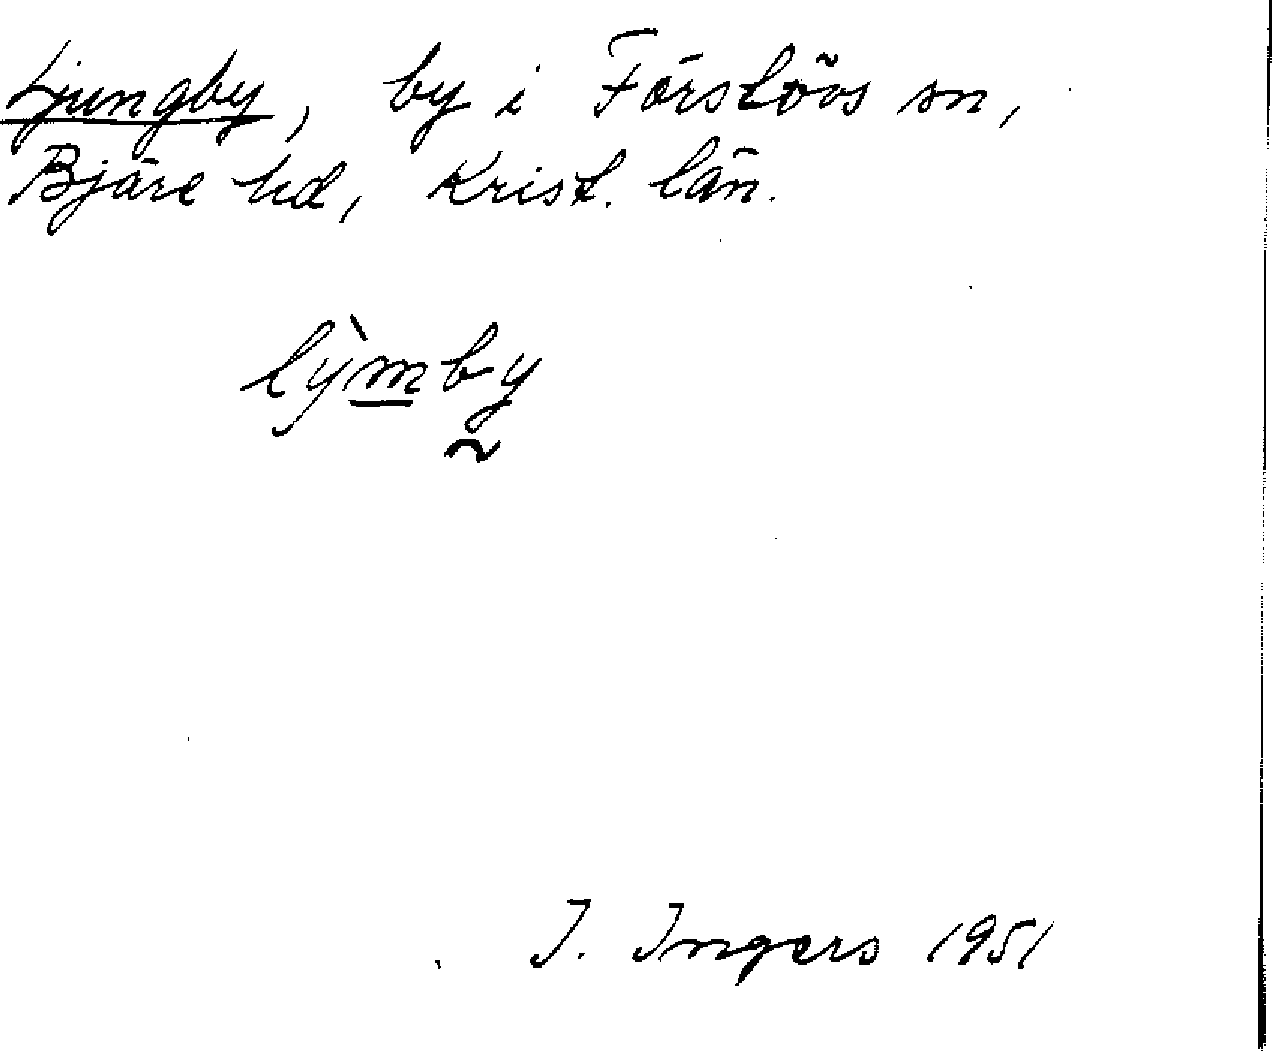 Ljungby, by i Förslövs sn,
Bjäre hd, Krist. län.
lỳmby
I. Ingers 1951